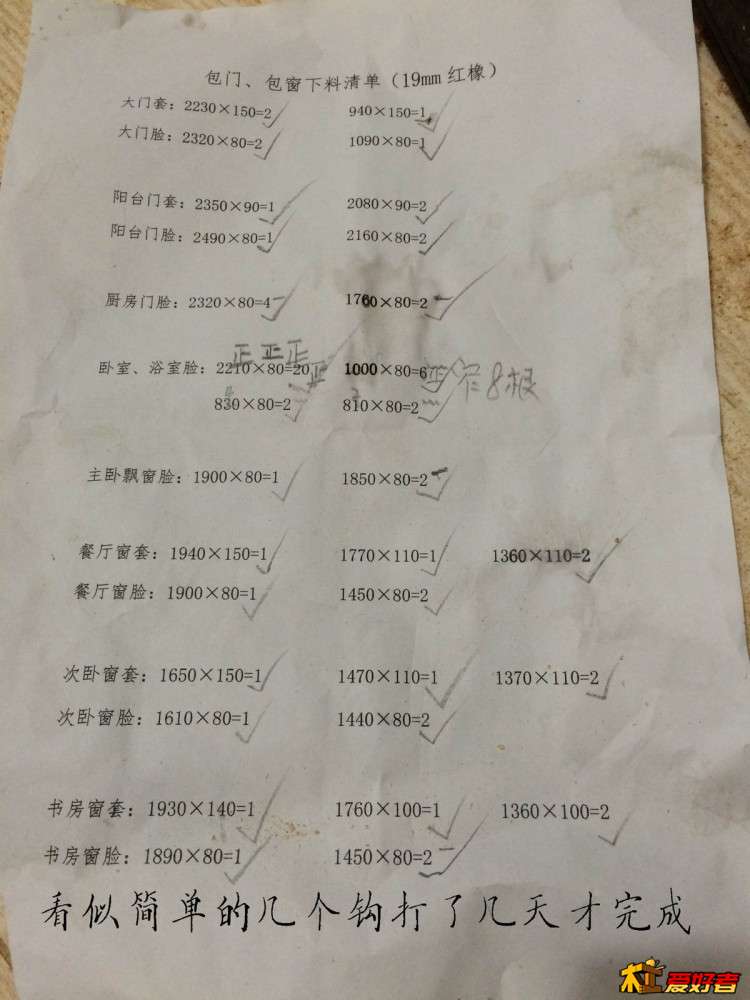 包门、包窗下料清单（19mm 红橡）
大门套：2230×150=2 940×150=1
大门脸：2320×80=2 1090×80=1
阳台门套：2350×90=1 2080×90=2
阳台门脸：2490×80=1 2160×80=2
厨房门脸：2320×80=4 1760×80=2
正正正
卧室、浴室脸：2210×80=20 正 1000×80=6 8根
830×80=2 810×80=2
主卧飘窗脸：1900×80=1 1850×80=2
餐厅窗套：1940×150=1 1770×110=1 1360×110=2
餐厅窗脸：1900×80=1 1450×80=2
次卧窗套：1650×150=1 1470×110=1 1370×110=2
次卧窗脸：1610×80=1 1440×80=2
书房窗套：1930×140=1 1760×100=1 1360×100=2
书房窗脸：1890×80=1 1450×80=2
看似简单的几个钩打了几天才完成
木工爱好者